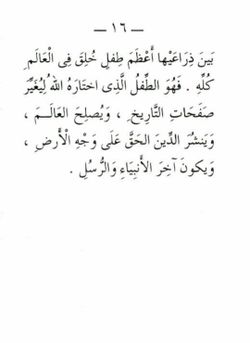 — ١٦ —
بَينَ ذِرَاعَيْها أَعْظَمَ طِفلٍ خُلِقَ فِى الْعَالَمِ
كُلِّهِ . فَهُوَ الطِّفْلُ الَّذِى اختَارَهُ اللهُ لِيُغَيِّرَ
صَفَحَاتِ التَّارِيخِ ، وَيُصلِحَ العَالَــمَ ،
وَيَنشُرَ الدِّينَ الحَقَّ عَلَى وَجْهِ الْأَرضِ ،
وَيَكونَ آخِرَ الأَنبِيَاءِ وَالرُّسُلِ .